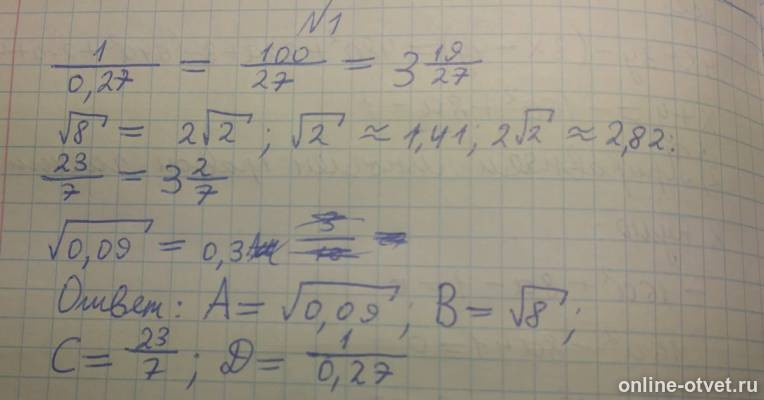 №1
1/0,27 = 100/27 = 3 19/27
√8 = 2√2; √2 ≈ 1,41; 2√2 ≈ 2,82.
23/7 = 3 2/7
√0,09 = 0,3
Ответ: A = √0,09; B = √8;
C = 23/7; D = 1/0,27
online-otvet.ru